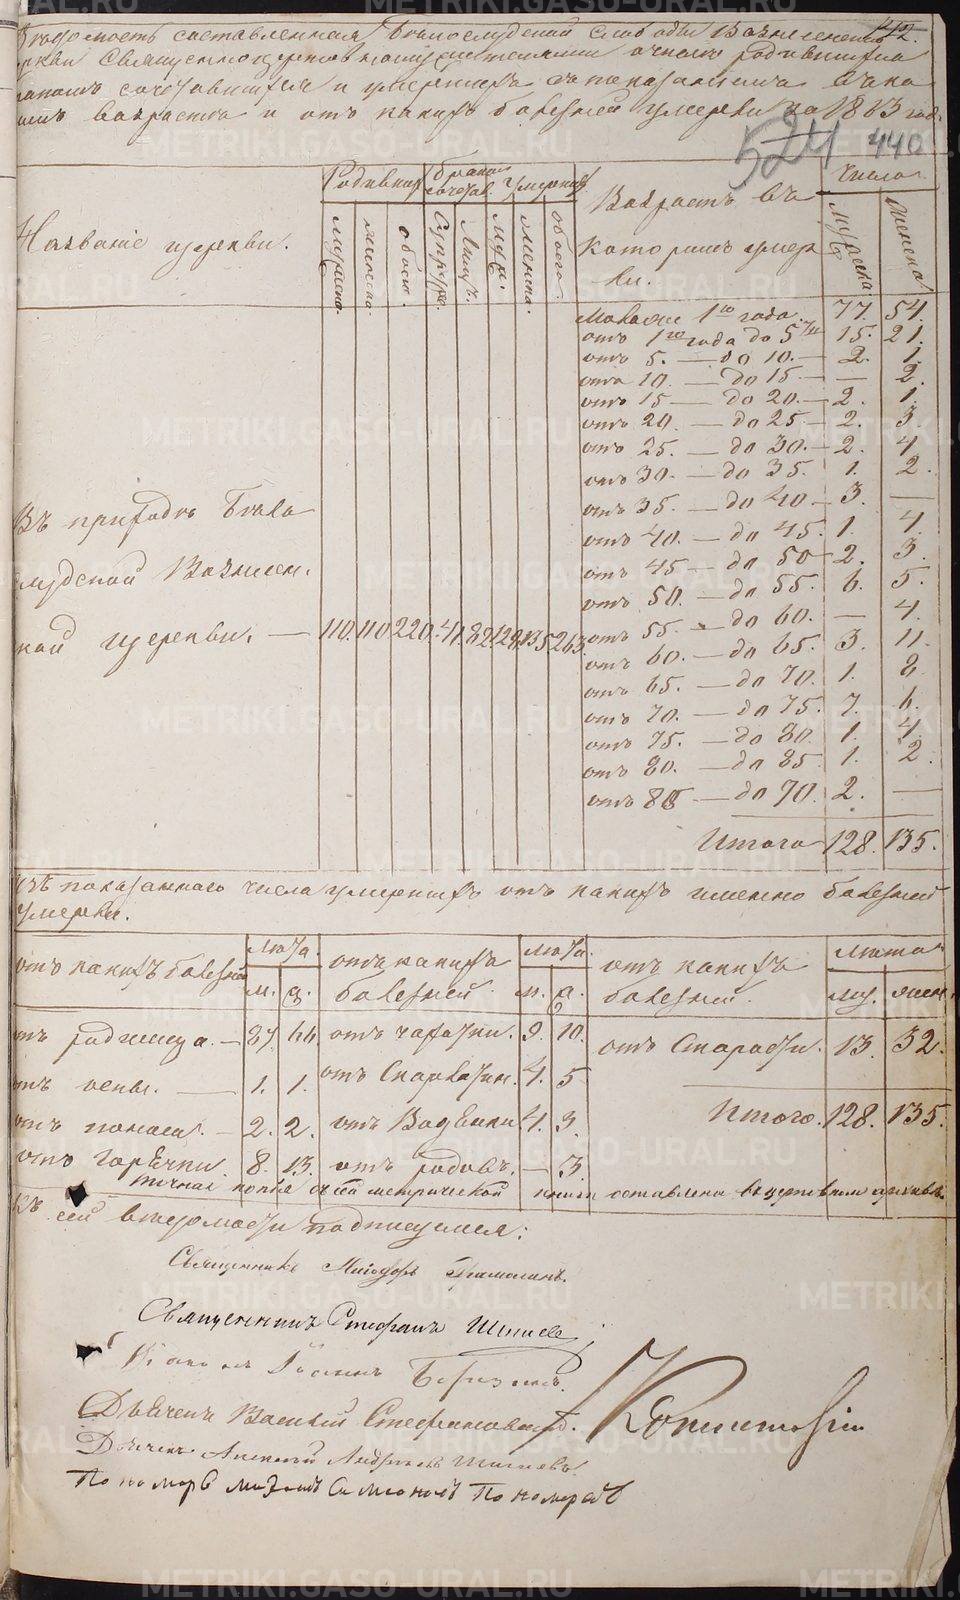 Ведомость составленная Белослудской Слободы Вознесенской
церкви Священноцерковнослужителями о числе родившихся
браком сочетавшихся и умерших с показанием в каких
летъ возраста и отъ какихъ болезней умерли за 1813 год.
442.
524 440
Название церкви.
Родивших
браком сочетав.
Умерших
Возрастъ въ которыхъ умерли.
Число
мужеска.
женска.
обоего.
Супруж.
Лицъ.
муж.
женска.
обоего.
мужеска.
женска.
Въ приходе Бело
слудской Вознесен.
ской церкви. — 110. 110 220. 41. 82. 128. 135. 263.
Моложе 1го года. 77. 54.
отъ 1го года до 5ти 15. 21.
отъ 5. — до 10. — 2. 1.
отъ 10. — до 15 — — 2.
отъ 15 — до 20. — 2. 1.
отъ 20. — до 25. — 2. 3.
отъ 25. — до 30. — 2. 4.
отъ 30. — до 35. 1. 2.
отъ 35. — до 40 — 3. —
отъ 40. — до 45. 1. 4.
отъ 45 — до 50 — 2. 3.
отъ 50. — до 55. 6. 5.
отъ 55. — до 60. — 4.
отъ 60. — до 65. 3. 11.
отъ 65. — до 70. 1. 8.
отъ 70. — до 75. 7. 6.
отъ 75. — до 80. 1. 4.
отъ 80. — до 85. 1. 2.
отъ 85 — до 70. 2. —
Итого 128. 135.
Изъ показаннаго числа умершихъ отъ какихъ именно болезней
умерли.
отъ какихъ болезней
м. ж.
отъ какихъ болезней.
м. ж.
отъ какихъ болезней.
муж. жен.
отъ родимца. — 87. 66. отъ чахотки. 9. 10. отъ Старости. 13. 32.
отъ оспы. — 1. 1. отъ 4. 5
отъ поноса. — 2. 2. отъ Водянки 4. 3. Итого. 128. 135.
отъ горячки. 8. 13. отъ родовъ. — 3.
точная копiя съ сей метрической книги оставлена въ церковномъ архиве.
Къ сей ведомости подписуемся:
Священникъ
Священникъ Стефанъ
Дьячекъ Василий
Дьячекъ Алексей
Пономарь
METRIKI.GASO-URAL.RU